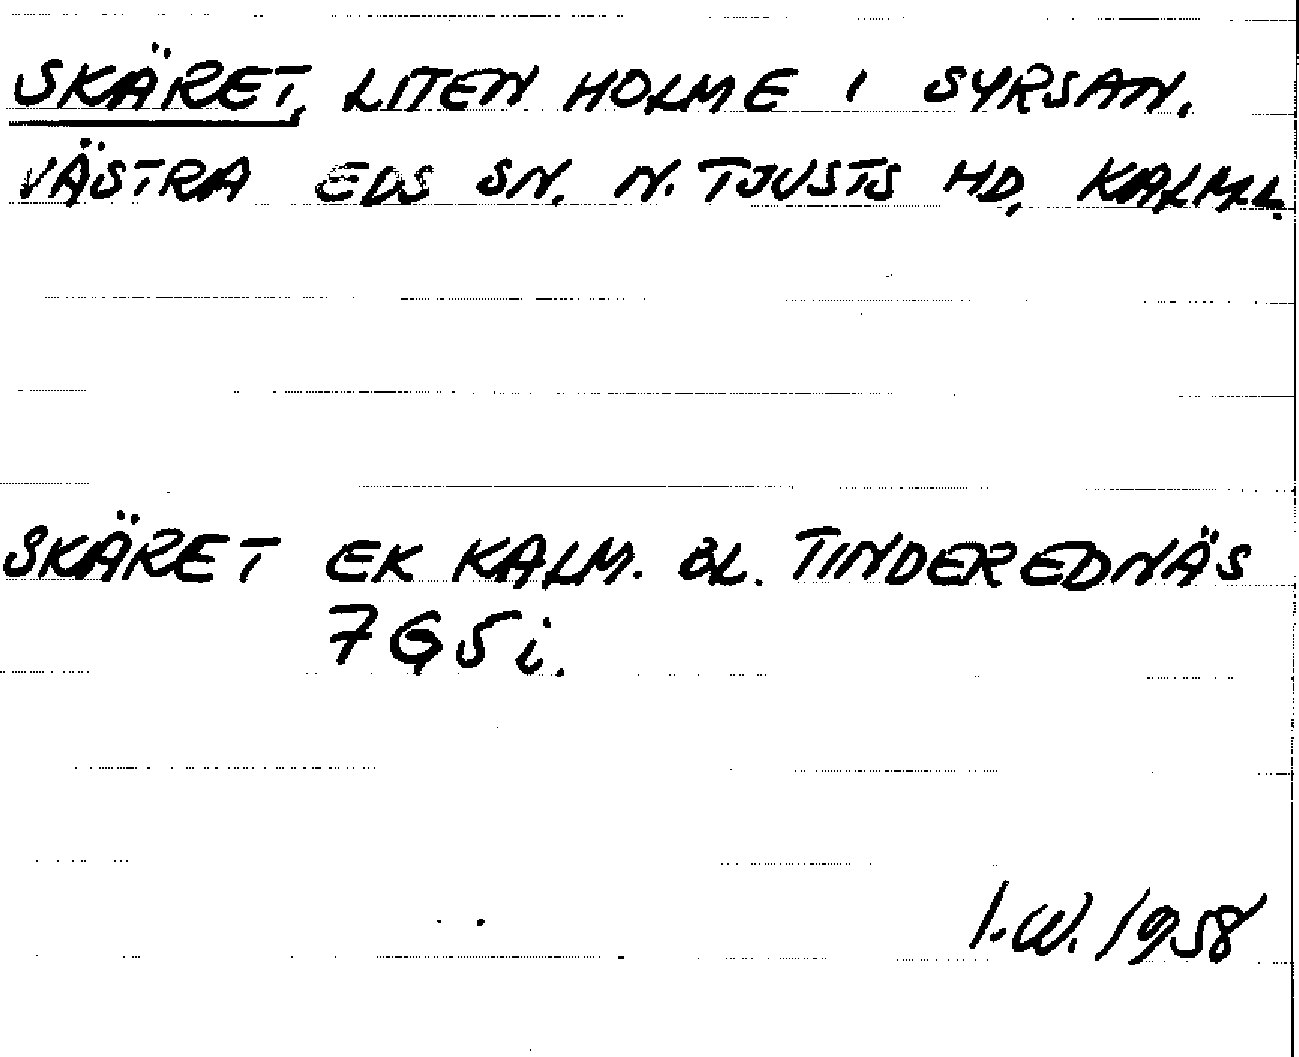 SKÄRET, LITEN HOLME I SYRSAN,
VÄSTRA EDS SN, N. TJUSTS HD, KALM.L.
SKÄRET EK KALM. BL. TINDEREDNÄS
7G5i.
I.W. 1958